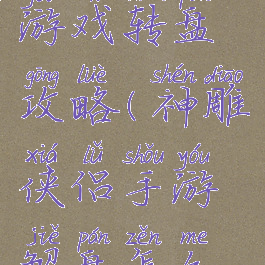 游戏转盘
gōng lüè shén diāo
攻略(神雕
xiá lǚ shǒu yóu
侠侣手游
jiě pán zěn me
解盘怎么